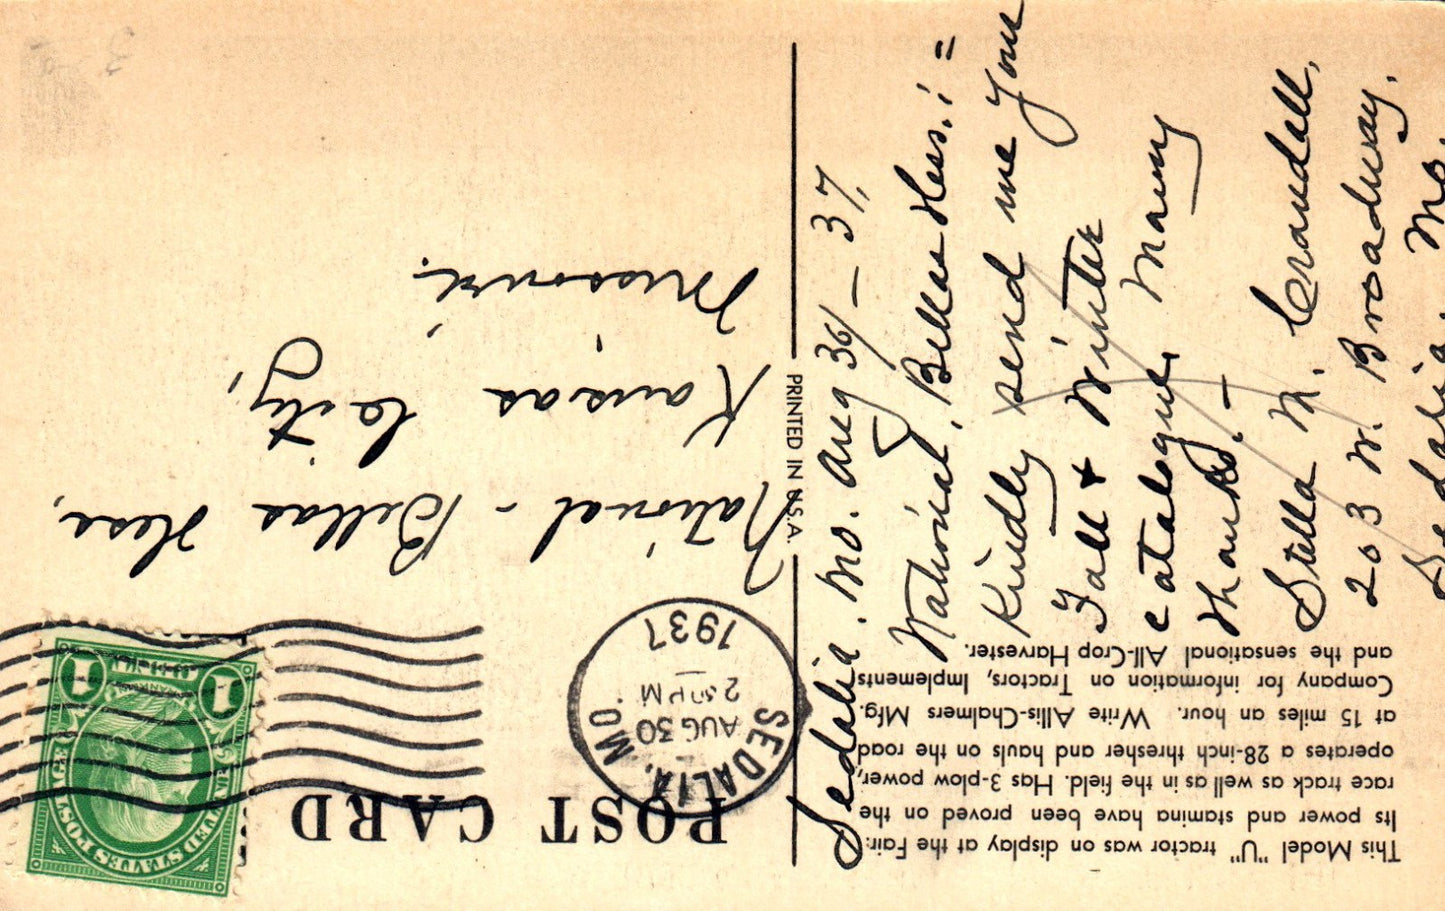 This Model "U" tractor was on display at the Fair.
Its power and stamina have been proved on the
race track as well as in the field. Has 3-plow power,
operates a 28-inch thresher and hauls on the road
at 15 miles an hour. Write Allis-Chalmers Mfg.
Company for information on Tractors, Implements
and the sensational All-Crop Harvester.
Sedalia. Mo. Aug 30/ — 37.
National, Bellas Hess. : =
Kindly send me your
Fall + Winter
catalogue. Many
thanks. —
Stella M. Crandall,
203 W. Broadway.
Sedalia. Mo.
PRINTED IN U.S.A.
POST CARD
SEDALIA, MO.
AUG 30
2 PM
1937
UNITED STATES POSTAGE
1
1
National - Bellas Hess,
Kansas City,
Missouri.